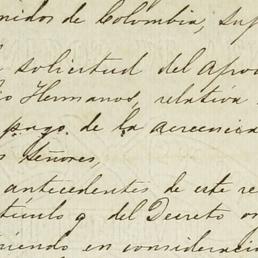 nidos de Colombia, sup
solicitud del apod
Hermanos, relativa
pago de la acreencia
Señores
antecedentes de este re
tículo 9 del Decreto or
en consideració